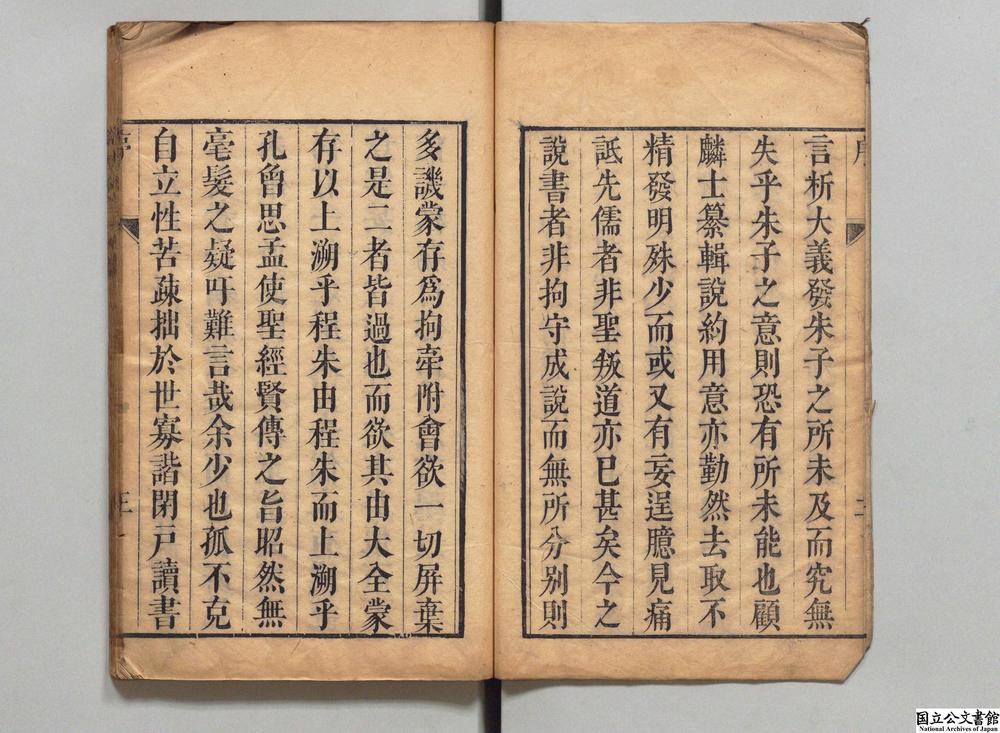 言析大義發朱子之所未及而究無
失乎朱子之意則恐有所未能也顧
麟士纂輯說約用意亦勤然去取不
精發明殊少而或又有妄逞臆見痛
詆先儒者非聖叛道亦已甚矣今之
說書者非拘守成說而無所分别則
多譏蒙存為拘牽附會欲一切屏棄
之是二者皆過也而欲其由大全蒙
存以上溯乎程朱由程朱而上溯乎
孔曾思孟使聖經賢傳之旨昭然無
毫髮之疑吁難言哉余少也孤不克
自立性苦疎拙於世寡諧閉戸讀書
国立公文書館
National Archives of Japan